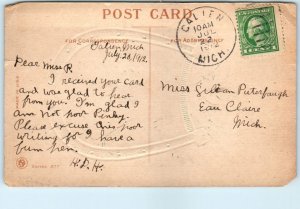 POST CARD
FOR CORRESPONDENCE
FOR ADDRESS ONLY
GALIEN
10 AM
JUL
1912
MICH.
Galien, Mich
July 23, 1912.
Dear Miss P.
I received your card
and was glad to hear
from you. I'm glad I
am not poor Pinky.
Please excuse this poor
writing for I have a
bum pen.
H.D.H.
Miss Gillian Puterbaugh
Eau Claire
Mich.